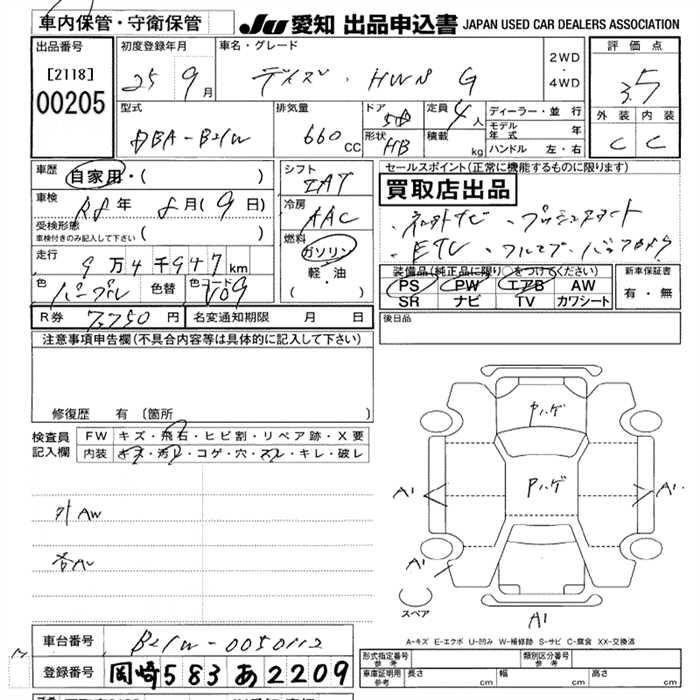 車内保管・守衛保管
JU 愛知 出品申込書 JAPAN USED CAR DEALERS ASSOCIATION
出品番号
[2118]
00205
初度登録年月
25 9月
車名・グレード
デイズ・HWS G
2WD
・
4WD
評価点
3.5
外装 内装
C C
型式
DBA-B21W
排気量
660 CC
ドア
5D
形状
HB
定員
4人
積載
kg
ディーラー・並行
モデル年式 年
ハンドル 左・右
車歴
自家用・( )
車検
R8年 8月(9日)
受検形態
車検付きのみ記入して下さい ( )
走行
9万4千947km
色
パープル
色替
色コード
V09
シフト
IAT
冷房
AAC
燃料
ガソリン
軽・油
( )
セールスポイント(正常に機能するものに限ります)
買取店出品
ETC
装備品(純正品に限り○をつけてください)
PS PW エアB AW
SR ナビ TV カワシート
新車保証書
有・無
R券 7,750円
名変通知期限 月 日
後日品
注意事項申告欄(不具合内容等は具体的に記入して下さい)
修復歴 有〔箇所 〕
検査員記入欄
FW キズ・飛石・ヒビ割・リペア跡・X要
内装 キズ・汚レ・コゲ・穴・スレ・キレ・破レ
外AW
ヤハゲ
Pハゲ
A1
A1
A1
A1
スペア
A-キズ E-エクボ U-凹み W-補修跡 S-サビ C-腐食 XX-交換済
車台番号 B21W-0050112
登録番号 岡崎 583 あ 2209
形式指定番号
参考
類別区分番号
参考
車庫証明用
参考
長さ cm
幅 cm
高さ cm